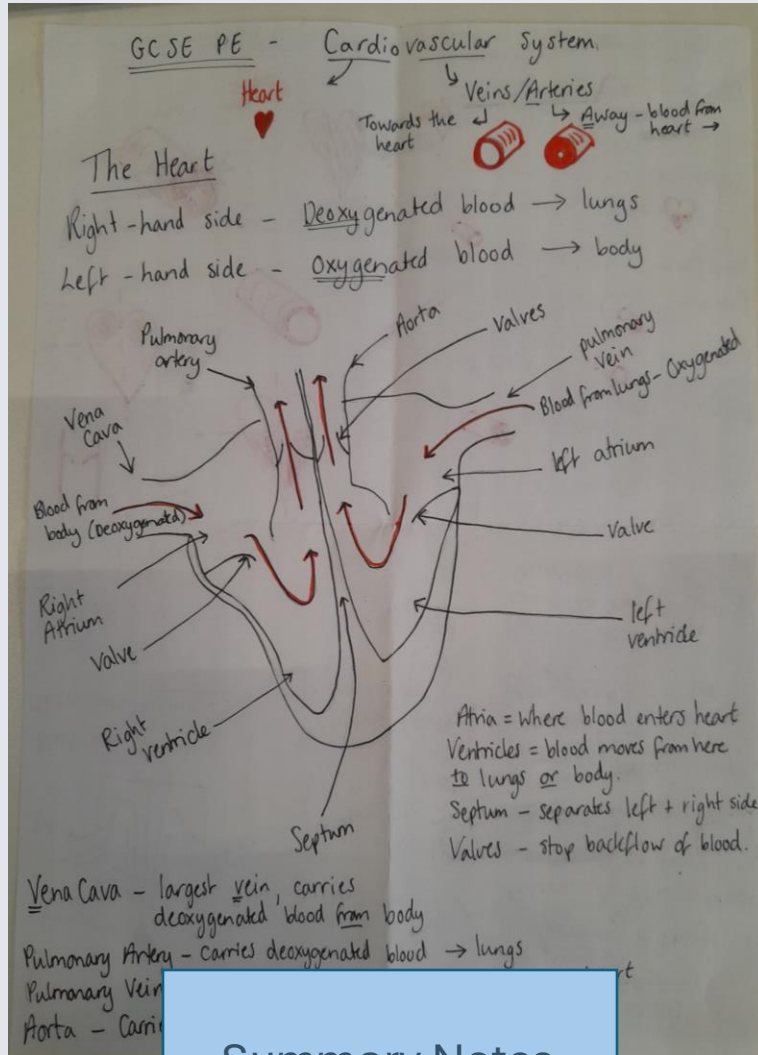 GCSE PE - Cardiovascular System.
Heart
Veins/Arteries
Towards the heart
Away - blood from heart →
The Heart
Right-hand side - Deoxygenated blood → lungs
Left-hand side - Oxygenated blood → body
Pulmonary artery
Aorta
Valves
pulmonary vein
Blood from lungs - Oxygenated
Vena Cava
left atrium
Blood from body (Deoxygenated)
Valve
Right Atrium
Valve
left ventricle
Right ventricle
Septum
Atria = where blood enters heart
Ventricles = blood moves from here
to lungs or body.
Septum - separates left + right side
Valves - stop backflow of blood.
Vena Cava - largest vein, carries
deoxygenated blood from body
Pulmonary Artery - Carries deoxygenated blood → lungs
Pulmonary Vein
Aorta -
Summary Notes